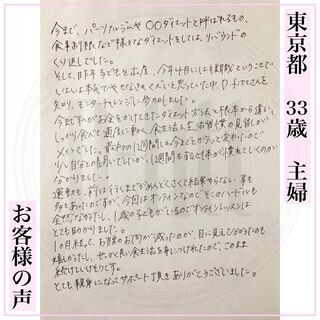 東京都　33歳　主婦
今まで、パーソナルジムや〇〇ダイエットと呼ばれるもの、
食事制限など様々なダイエットをしては、リバウンドの
くり返しでした。
そして、昨年子どもを出産、今年4月には復職ということで
しはいは本気でやせなきゃと思っていた中、D.fitさんを
知り、モニターチャレンジに参加しました。
今まで私がお金をかけてきたダイエット方法と根本から違い、
しっかり食べて適宜に動く、食生活と生活習慣の見直しが
メインでした。最初の1週間は今までとガラッと変わったので
少し自分との闘いでしたが、2週間もすると体が慣れていくのが
分かりました。
運動も、前は行くまでがめんどくさくて結果やらない事も
多々あったのですが、今回はオンラインなのでそのハードルも
全然なかったし、1歳の子どもがいるのでオンラインレッスンは
とても助かりました。
1カ月経って、お腹のお肉が減ったのが、目に見えて分かったのも
嬉しかったし、せっかく良い食生活を身につけられたので、このまま
続けていけそうです。
とても親身になってサポート頂きありがとうございました。
お客様の声